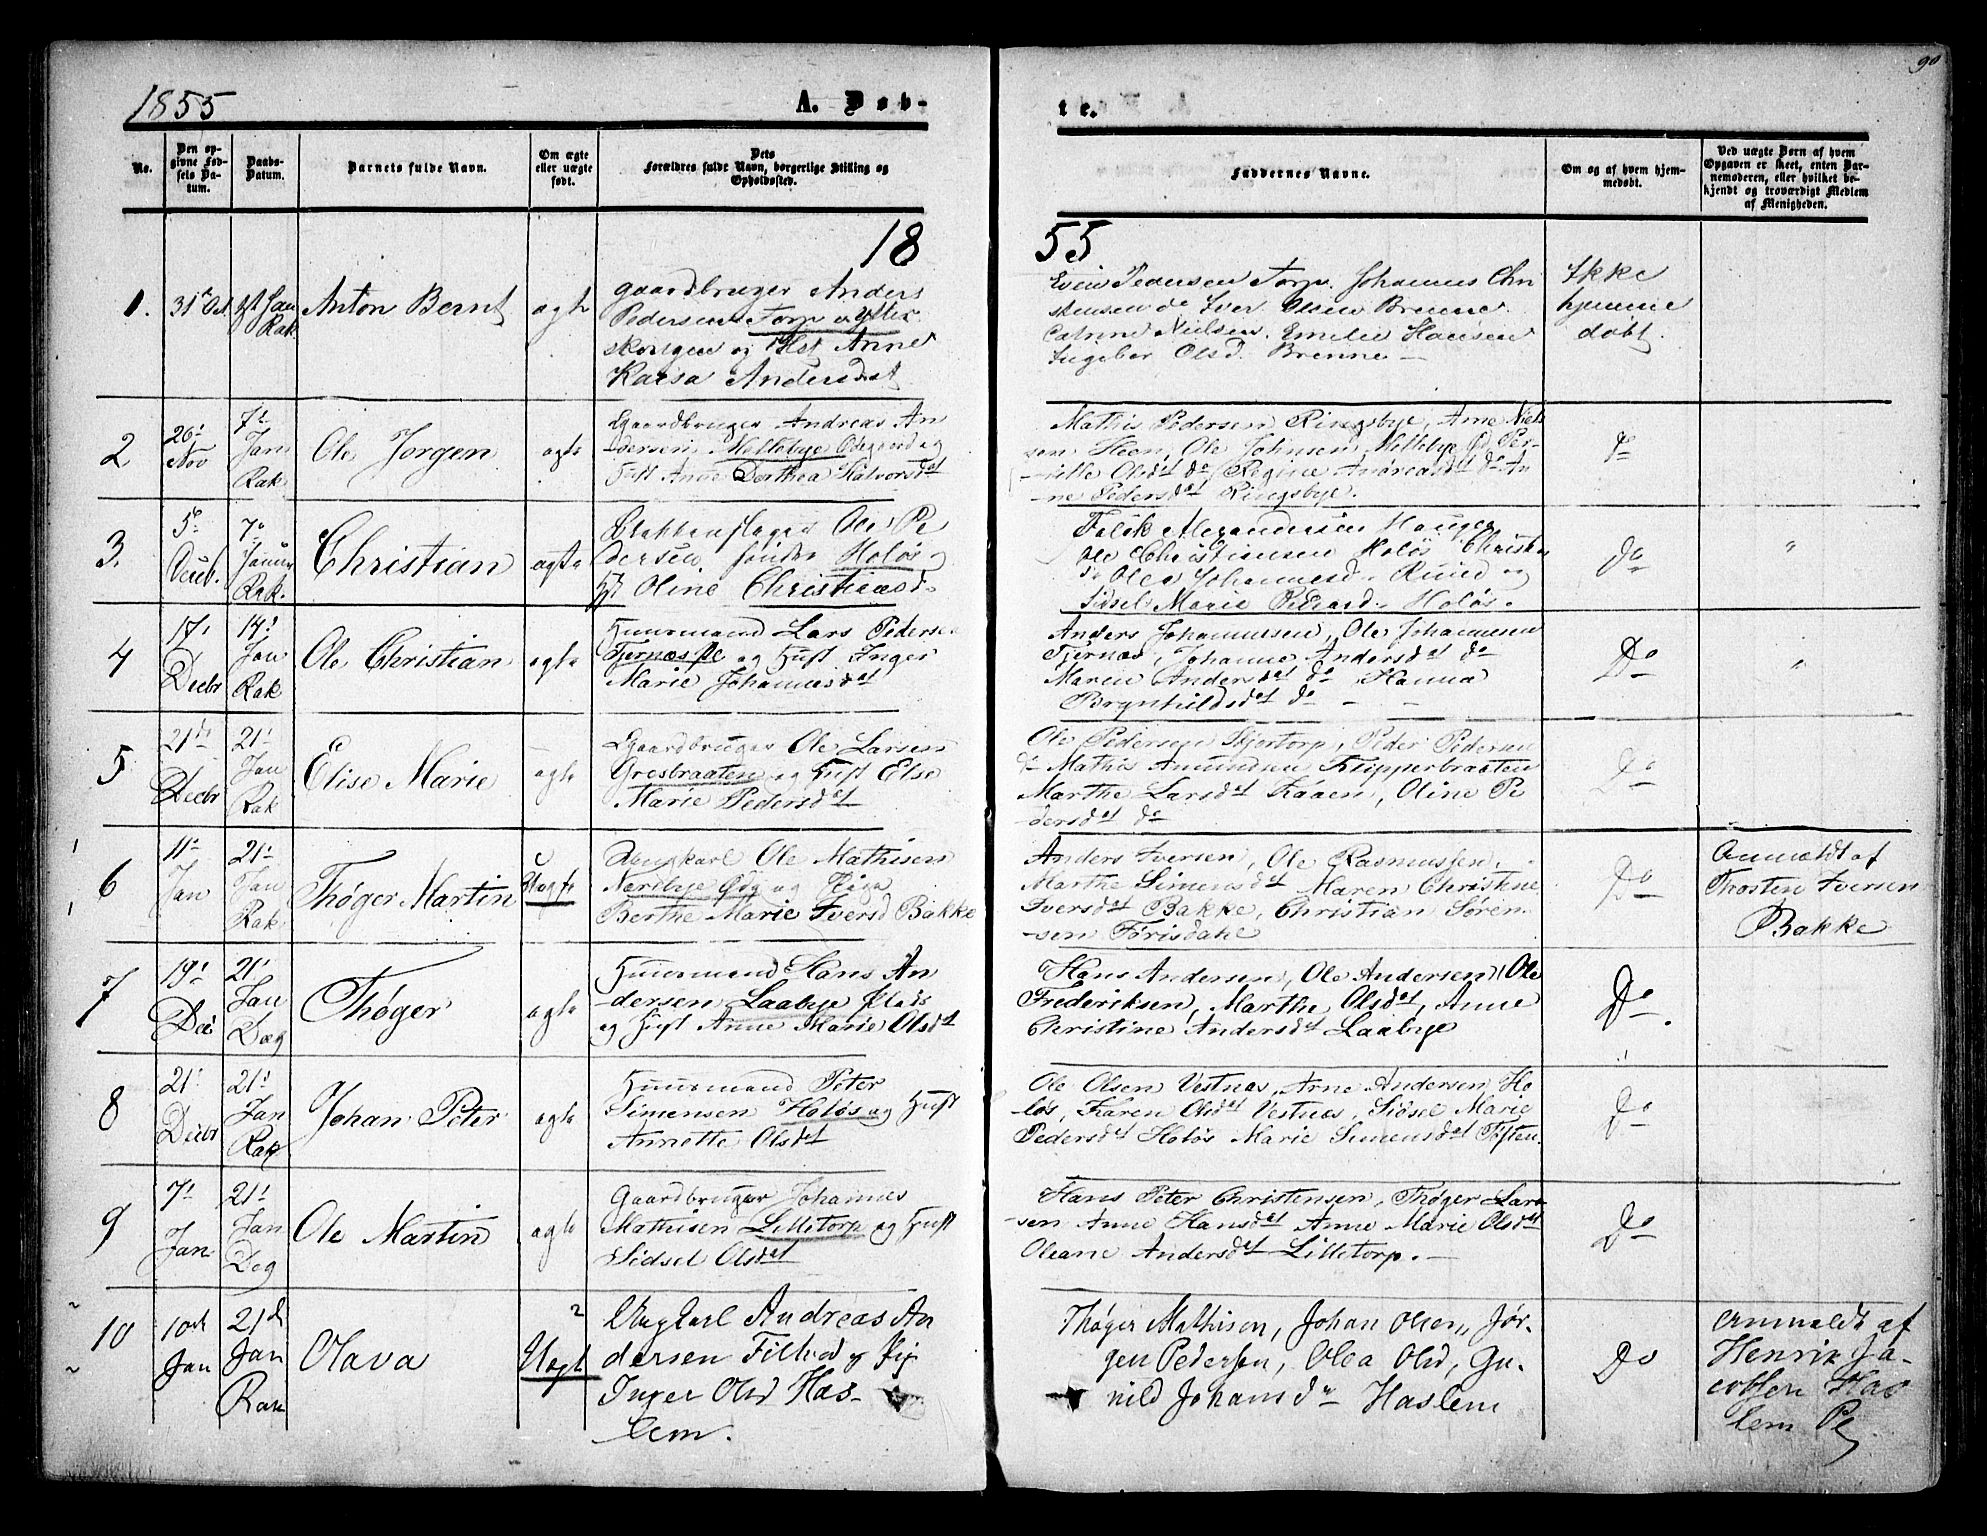 1855
A. Døb-
te.
90
No.
Den op-
givne Fød-
sels Da-
tum.
Daabs-
Datum.
Barnets fulde Navn.
Om ægte
eller uægte
født.
Dets
Forældres fulde Navn, borgerlige Stilling og
Opholdssted.
Faddernes Navne.
Om og af hvem hjem-
medøbt.
Ved uægte Børn af hvem
Opgaven er skeet, enten Bar-
nemoderen, eller hvilket be-
kjendt og troværdigt Medlem
af Menigheden.
18
55
1.
31
Rak
Anton Bernt
ægte
gaardbruger Anders
Pedersen Torp
og Hst Anne
Andersdat
Pedersen Torp. Johannes Chri
stensen do Iver Olsen Brenne.
Catrine Nielsen. Emelie Hansen
Ingebor Olsd. Brenne
Ikke
hjemme
døbt.
2
26'
Nov
7'
Jan
Rak.
Ole Jørgen
ægte
Gaardbruger Andreas An
dersen, Mellebye Ødegaard og
Hust Anne Dorthea Halvorsdat
Mathis Pedersen Ringsbye, Arne Niel
sen Heen, Ole Johnsen Mellebye Ød, Per-
nille Olsdat do, Regine Andreasdat do An
ne Pedersdat Ringsbye.
do
3.
5
Decb.
7
Januar
Rak.
Christian
ægte
Ole Pe
dersen Holøs og
Hst Oline Christiansd.
Falck Alexandersen Hauger
Ole Christiansen Holøs
do Olea Johannesd. Ruud og
Sidsel Marie Pedersd. Holøs.
do
"
4
17'
Decbr
14'
Jan
Rak
Ole Christian
ægte
Huusmand Lars Pedersen
Tjernæs Pl og Hust Inger
Marie Johannesdat
Anders Johannesen, Ole Johannesen
Tjernæs, Johanne Andersdat do
Maren Andersdat do Hanna
Brynhildsdat do
Do
"
5
21de
Decbr
21'
Jan
Rak
Elise Marie
ægte
Gaardbruger Ole Larsen
Gresbraaten og Hust Else
Marie Pedersdat
Ole Pedersen Skjørtorp, Peder Pedersen
do Mathis Amundsen Knipperbraaten
Marthe Larsdat Kaaen, Oline Pe
dersdat do
Do
6
11'
Jan
21'
Jan
Rak
Thøger Martin
Uægte
Ungkarl Ole Mathisen
Nordbye Ødg og Piga
Berthe Marie Iversd Bakke
Anders Iversen, Ole Rasmussen,
Marthe Simensdat Maren Christine
Iversdat Bakke, Christian Søren-
sen Førisdahl
Do
Anmældt af
Thosten Iversen
Bakke
7
19'
Dec
21'
Jan
Dæg
Thøger
ægte
Huusmand Hans An
dersen Laabye plads
og Hust Anne Marie Olsdat
Hans Andersen, Ole Andersen, Ole
Frederiksen, Marthe Olsdat, Anne
Christine Andersdat Laabye
Do.
8
21'
Decbr
21'
Jan
Rak
Johan Peter
ægte
Huusmand Peter
Simensen Holøs og Hust
Annette Olsdat
Ole Olsen Vestnæs, Arne Andersen Ho
løs, Karen Olsdat Vestnæs, Sidsel Marie
Pedersdat Holøs Marie Simensdat Toften
Do
9
7'
Jan
21'
Jan
Deg
Ole Martin
ægte
Gaardbruger Johannes
Mathisen Lilletorp og Hust
Sidsel Olsdat
Hans Peter Christensen, Thøger Lar
sen Anne Hansdat Anne Marie Olsdat
Oleane Andersdat Lilletorp.
Do
10
10de
Jan
21d
Jan
Rak
Olava
2
Uægt
Ungkarl Andreas An
dersen og Pig
Inger Olsd Has-
lem.
Thøger Mathisen, Johan Olsen, Jør-
gen Pedersen, Olea Olsd, Gu-
nild Johansd Haslem
Do
Anmeldt af
Henrik Ja-
cobsen Has
lem Pl